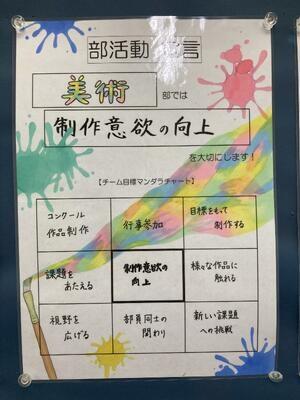 部活動 言
美術
部では
制作意欲の向上
を大切にします!
【チーム目標マンダラチャート】
コンクール
作品制作
行事参加
目標をもって
制作する
課題を
あたえる
制作意欲の
向上
様々な作品に
触れる
視野を
広げる
部員同士の
関わり
新しい課題
への挑戦